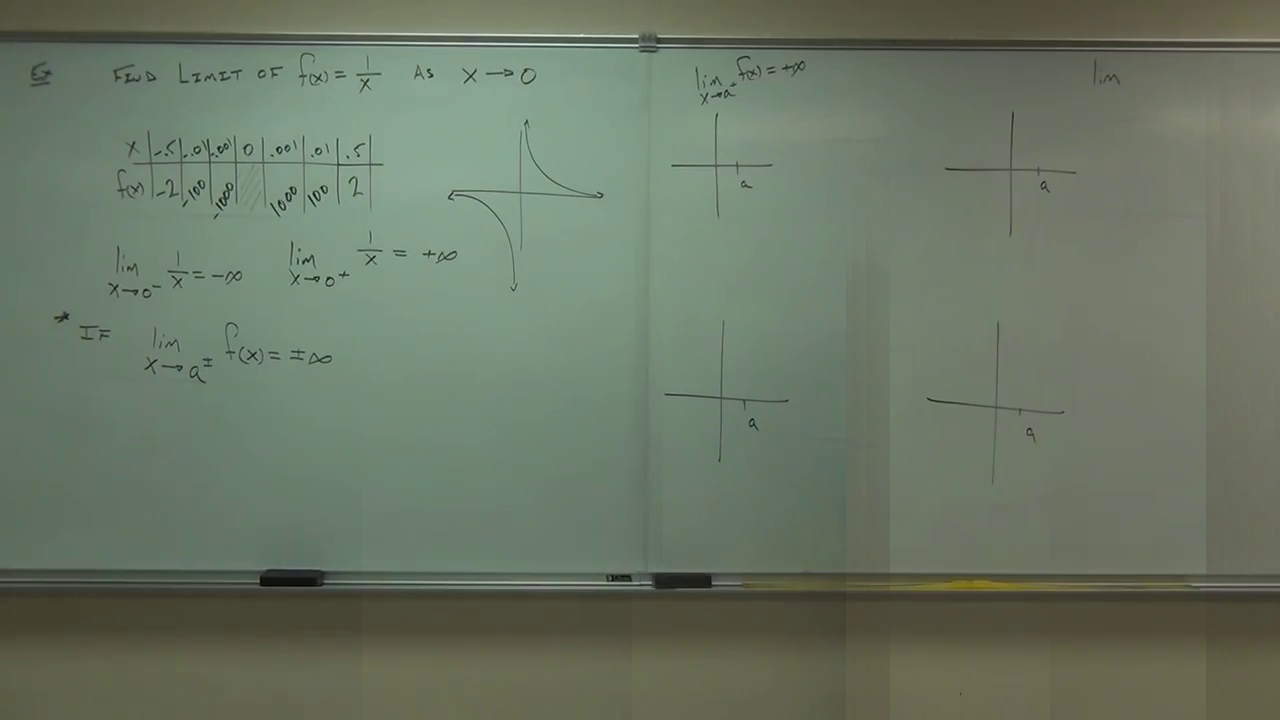 Ex FIND LIMIT OF f(x) = 1/x AS x → 0
x | -.5 | -.01 | -.001 | 0 | .001 | .01 | .5
f(x) | -2 | -100 | -1000 | | 1000 | 100 | 2
lim x→0⁻ 1/x = -∞ lim x→0⁺ 1/x = +∞
* IF lim x→a± f(x) = ±∞
lim x→a⁺ f(x) = +∞
lim
a
a
a
a